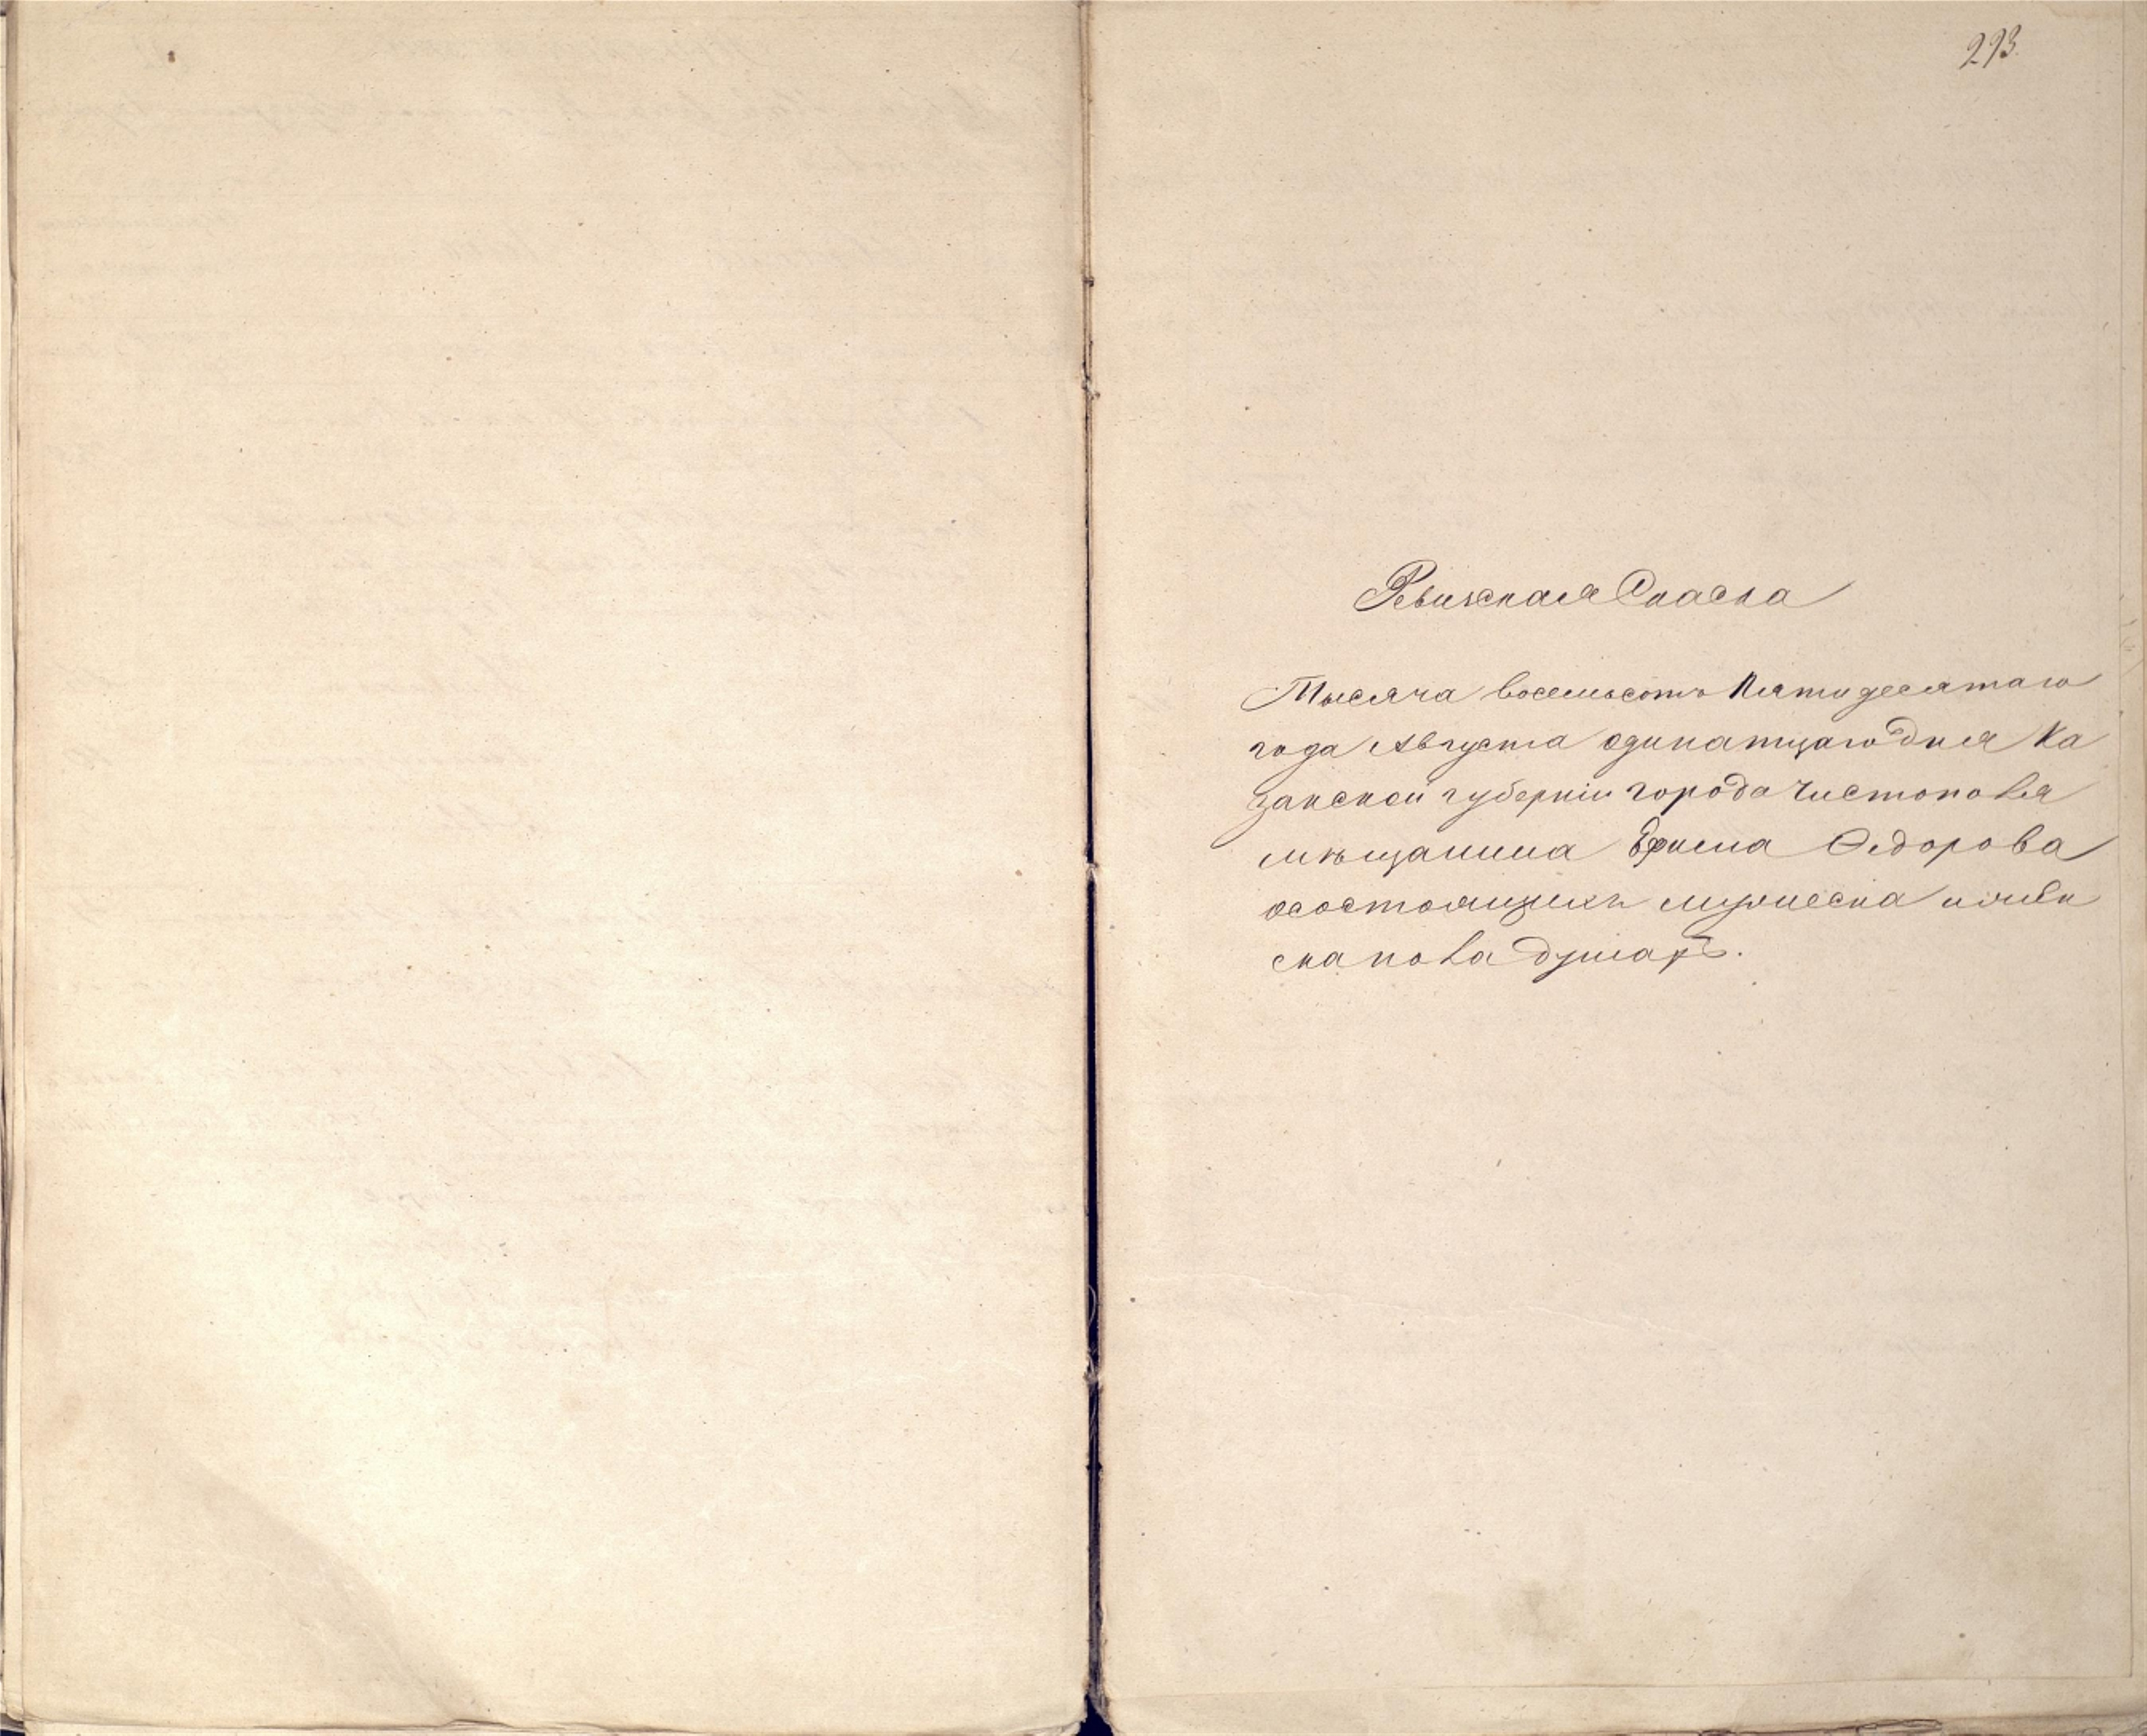 293.
Ревижская Скаска
Тысяча восемьсотъ Пятидесятаго
года Августа одинатцаго дня Ка
занской губерніи города Чистополя
мѣщанина Ефима Ѳедорова
осостоящихъ мужеска
скаго пола душахъ.